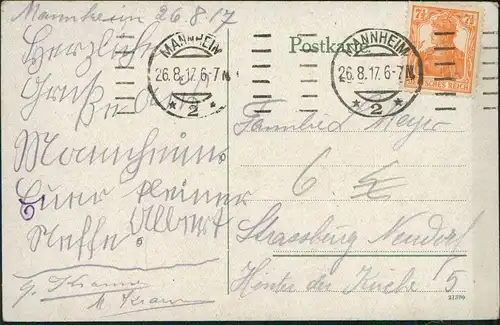 Mannheim 26.8.17
Herzliche
Gruße aus
Mannheim.
Euer kleiner
Neffe. Albert
MANNHEIM
26.8.17.6-7N.
* 2 *
Postkarte
MANNHEIM
26.8.17.6-7N.
* 2 *
7½ 7½
DEUTSCHES REICH
Familie Meyer
Strassburg Neudorf
Hinter der Kirche 5